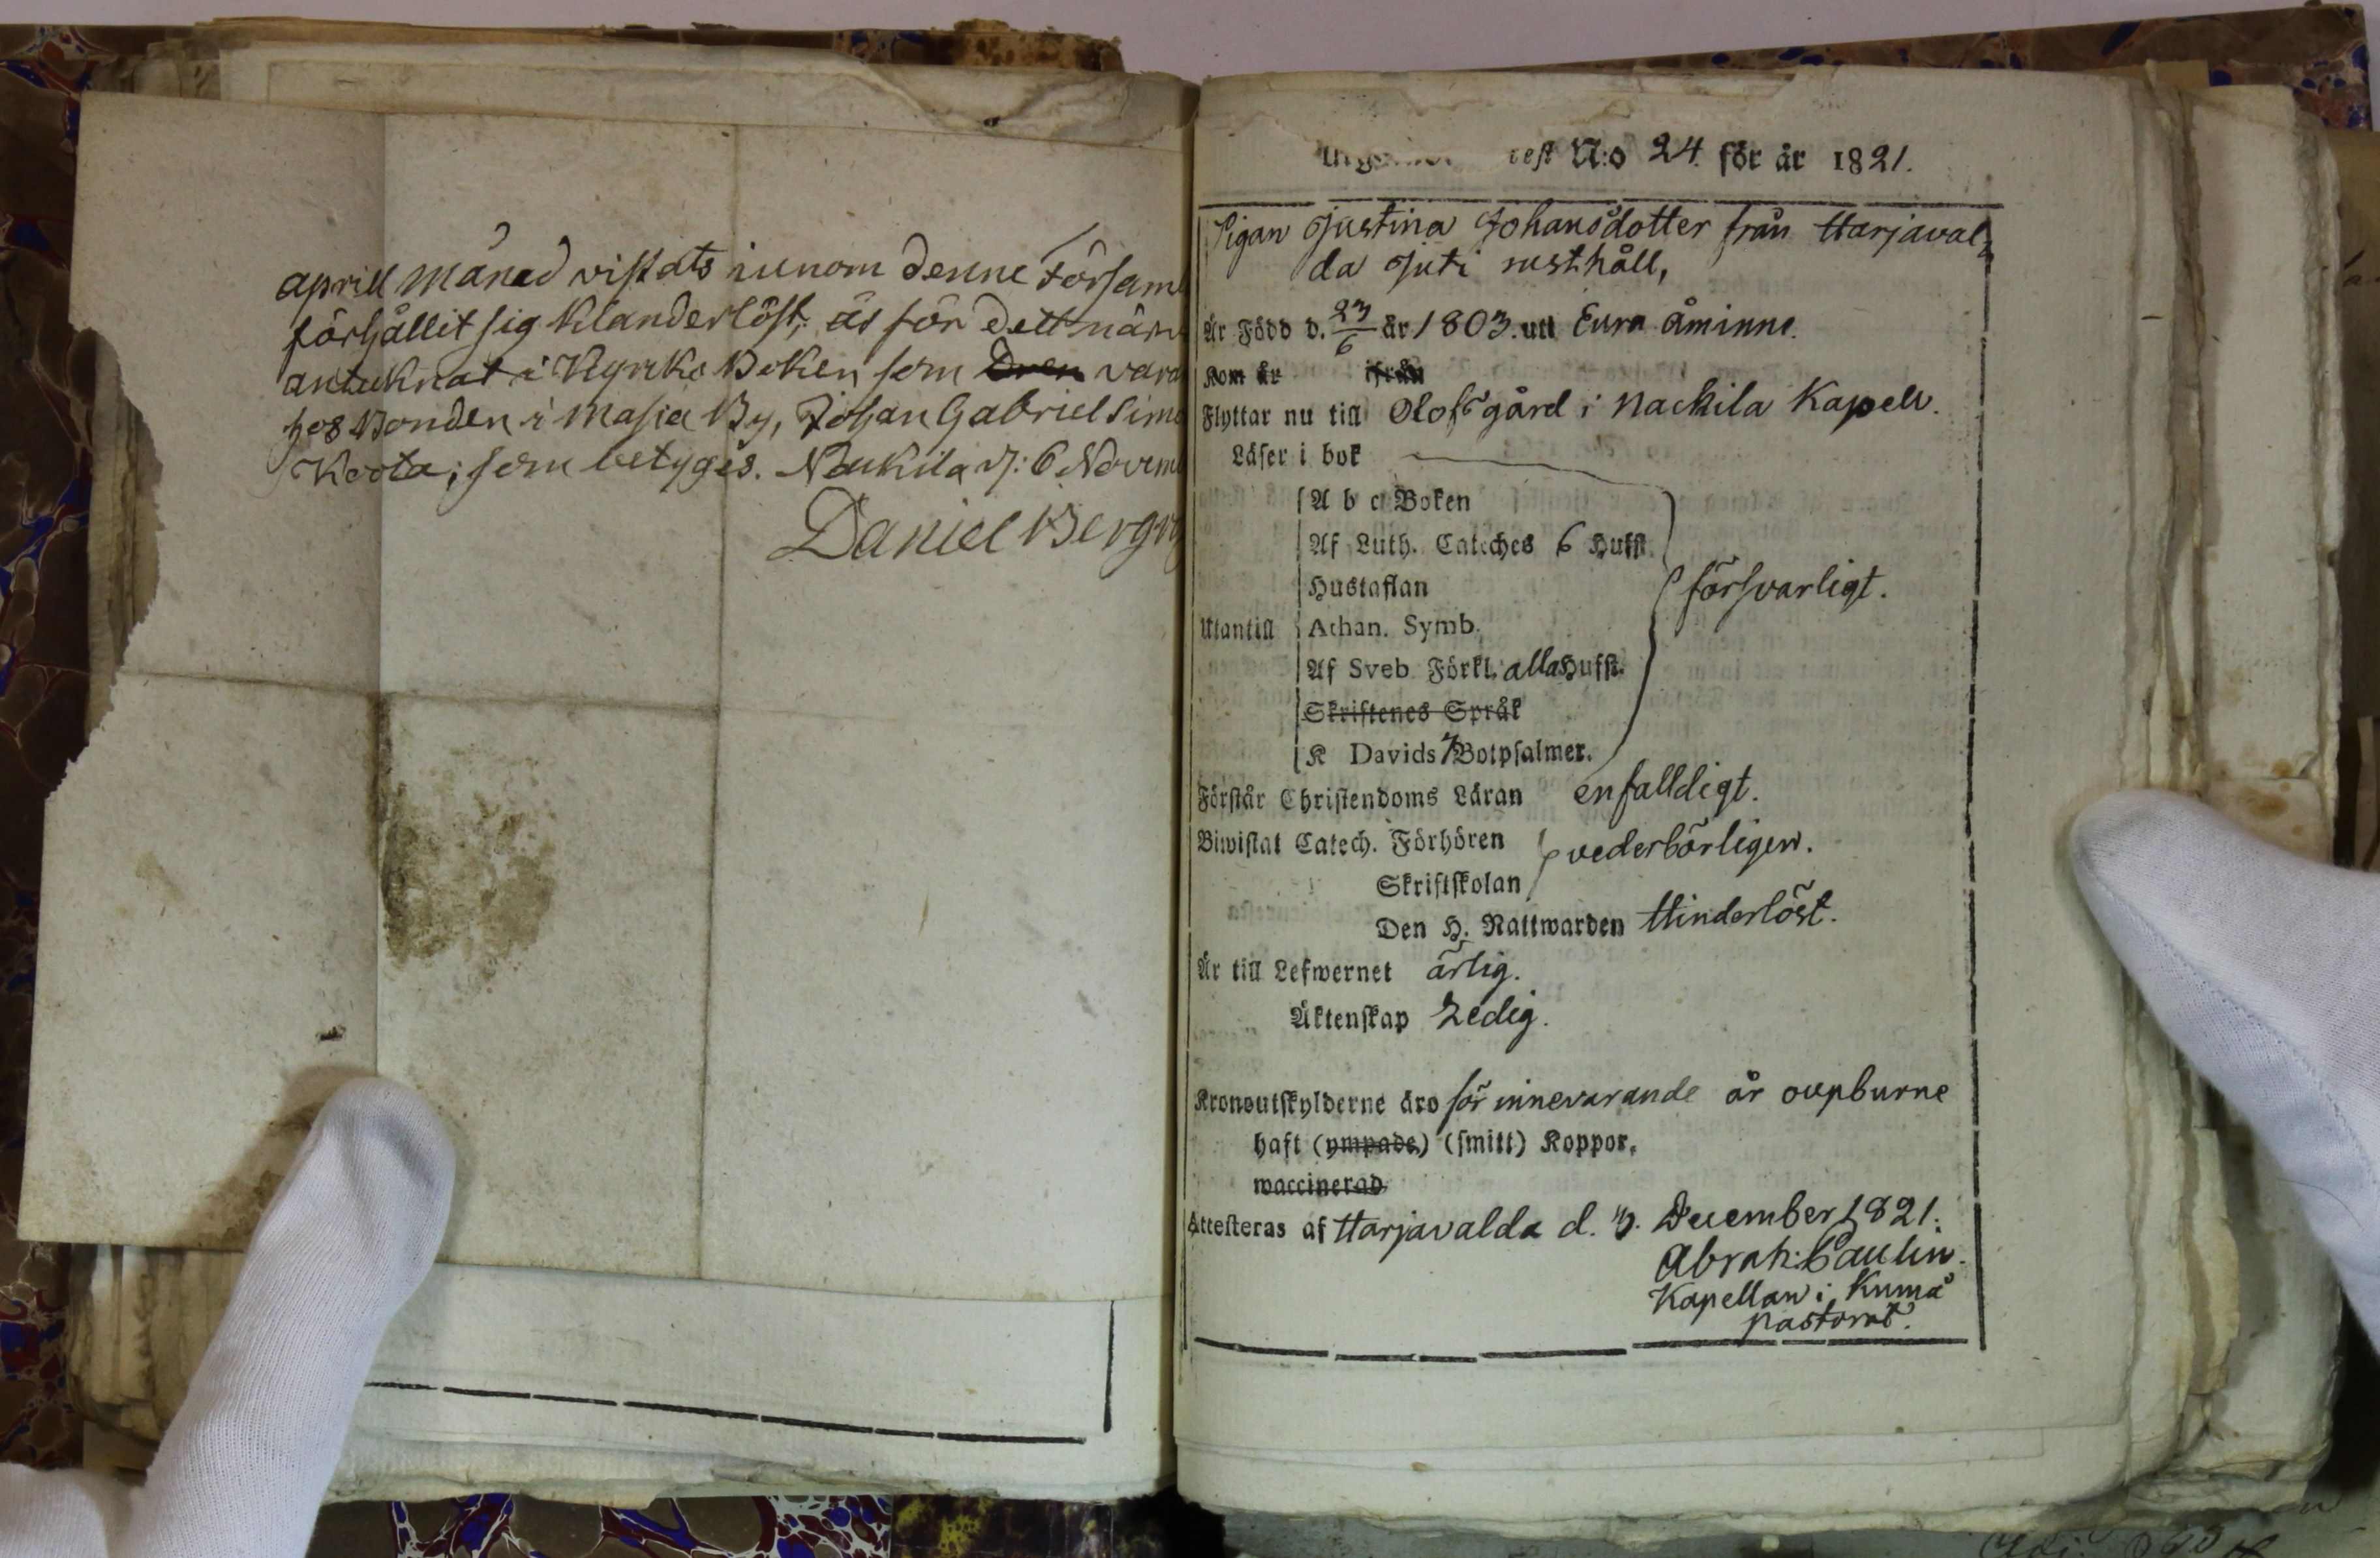 aprill månad vistats innom denne Församl
förhållit sig klanderlöst, är för dett närv
antecknat i Kyrko Boken som Dren vara
hos Bonden i Masia By, Johan Gabriel Sim
Koota; som betyges. Naukila d: 6 Novem
Daniel Bergr
test N:o 24. för år 1821.
Pigan Justina Johansdotter från Harjaval,
da Juti rusthåll,
Är Född d. 23/6 år 1803. uti Eura åminne.
Kom år ifrån
Flyttar nu till Olofsgård i Nackila Kapell.
Läser i bok
A b c Boken
Af Luth. Cateches 6 Hufst.
Hustaflan
försvarligt.
Utantill Athan. Symb.
Af Sveb. Förkl. alla Hufst.
Skriftenes Språk
K Davids 7 Botpsalmer.
Förstår Christendoms Läran enfalldigt.
Biwistat Catech. Förhören vederbörligen.
Skriftskolan
Den H. Nattwarden Hinderlöst.
Är till Lefwernet ärlig.
Äktenskap Ledig.
Kronoutskylderne äro för innevarande år oupburne
haft (ympade) (smitt) Koppor.
waccinerad
Attesteras af Harjavalda d. 3. December 1821.
Abrah: Paulin.
Kapellan i Kumå
pastorat.